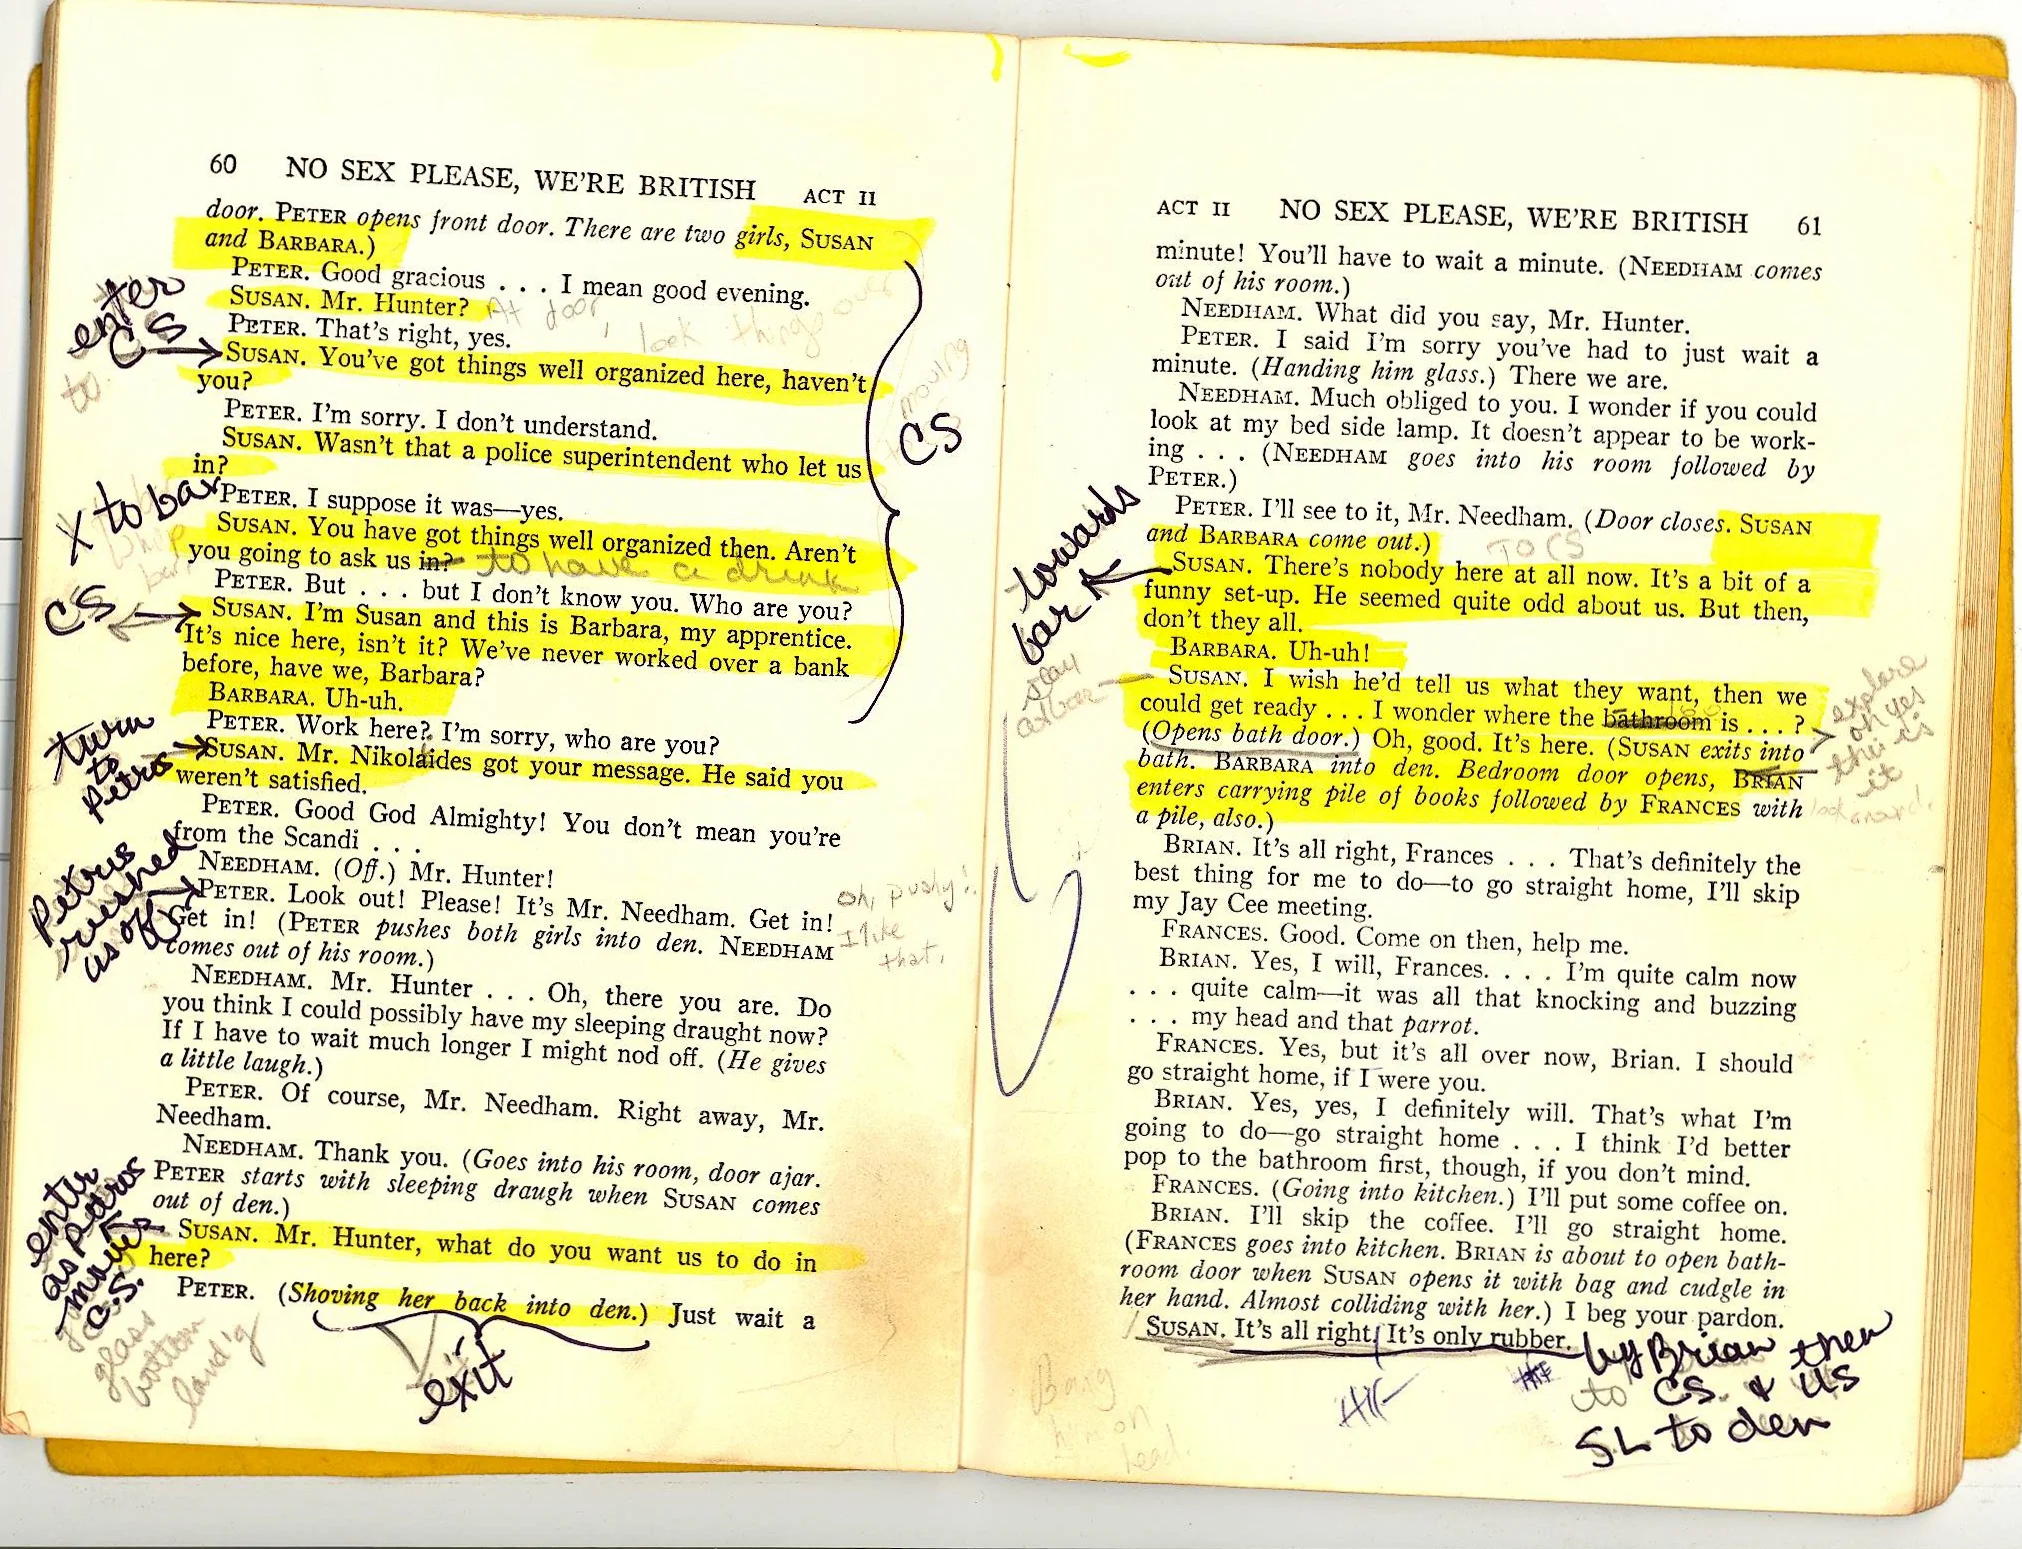 60 NO SEX PLEASE, WE'RE BRITISH ACT II
door. PETER opens front door. There are two girls, SUSAN
and BARBARA.)
PETER. Good gracious . . . I mean good evening.
SUSAN. Mr. Hunter? At door, look things over
PETER. That's right, yes.
enter CS
to
SUSAN. You've got things well organized here, haven't
you?
moving
CS
PETER. I'm sorry. I don't understand.
SUSAN. Wasn't that a police superintendent who let us
in?
X to bar
PETER. I suppose it was—yes.
SUSAN. You have got things well organized then. Aren't
you going to ask us in? to have a drink
PETER. But . . . but I don't know you. Who are you?
CS
SUSAN. I'm Susan and this is Barbara, my apprentice.
It's nice here, isn't it? We've never worked over a bank
before, have we, Barbara?
BARBARA. Uh-uh.
PETER. Work here? I'm sorry, who are you?
turn
to
Petros
SUSAN. Mr. Nikolaides got your message. He said you
weren't satisfied.
PETER. Good God Almighty! You don't mean you're
from the Scandi . . .
NEEDHAM. (Off.) Mr. Hunter!
Petrus
rushed
us off
PETER. Look out! Please! It's Mr. Needham. Get in!
Get in! (PETER pushes both girls into den. NEEDHAM
comes out of his room.)
Oh, pushy!
I like
that.
NEEDHAM. Mr. Hunter . . . Oh, there you are. Do
you think I could possibly have my sleeping draught now?
If I have to wait much longer I might nod off. (He gives
a little laugh.)
PETER. Of course, Mr. Needham. Right away, Mr.
Needham.
NEEDHAM. Thank you. (Goes into his room, door ajar.
PETER starts with sleeping draugh when SUSAN comes
out of den.)
enter
as Petros
moves
C.S.
SUSAN. Mr. Hunter, what do you want us to do in
here?
PETER. (Shoving her back into den.) Just wait a
glass
bottom
exit
ACT II NO SEX PLEASE, WE'RE BRITISH 61
minute! You'll have to wait a minute. (NEEDHAM comes
out of his room.)
NEEDHAM. What did you say, Mr. Hunter.
PETER. I said I'm sorry you've had to just wait a
minute. (Handing him glass.) There we are.
NEEDHAM. Much obliged to you. I wonder if you could
look at my bed side lamp. It doesn't appear to be work-
ing . . . (NEEDHAM goes into his room followed by
PETER.)
PETER. I'll see to it, Mr. Needham. (Door closes. SUSAN
and BARBARA come out.) TO CS
towards
bar
SUSAN. There's nobody here at all now. It's a bit of a
funny set-up. He seemed quite odd about us. But then,
don't they all.
BARBARA. Uh-uh!
stay
at bar
SUSAN. I wish he'd tell us what they want, then we
could get ready . . . I wonder where the bathroom is . . . ?
(Opens bath door.) Oh, good. It's here. (SUSAN exits into
bath. BARBARA into den. Bedroom door opens, BRIAN
enters carrying pile of books followed by FRANCES with
a pile, also.)
explore
oh yes
this is
it
look around.
BRIAN. It's all right, Frances . . . That's definitely the
best thing for me to do—to go straight home, I'll skip
my Jay Cee meeting.
FRANCES. Good. Come on then, help me.
BRIAN. Yes, I will, Frances. . . . I'm quite calm now
. . . quite calm—it was all that knocking and buzzing
. . . my head and that parrot.
FRANCES. Yes, but it's all over now, Brian. I should
go straight home, if I were you.
BRIAN. Yes, yes, I definitely will. That's what I'm
going to do—go straight home . . . I think I'd better
pop to the bathroom first, though, if you don't mind.
FRANCES. (Going into kitchen.) I'll put some coffee on.
BRIAN. I'll skip the coffee. I'll go straight home.
(FRANCES goes into kitchen. BRIAN is about to open bath-
room door when SUSAN opens it with bag and cudgle in
her hand. Almost colliding with her.) I beg your pardon.
SUSAN. It's all right. It's only rubber.
by Brian then
to CS & US
SL to den
Bang
him on
head.